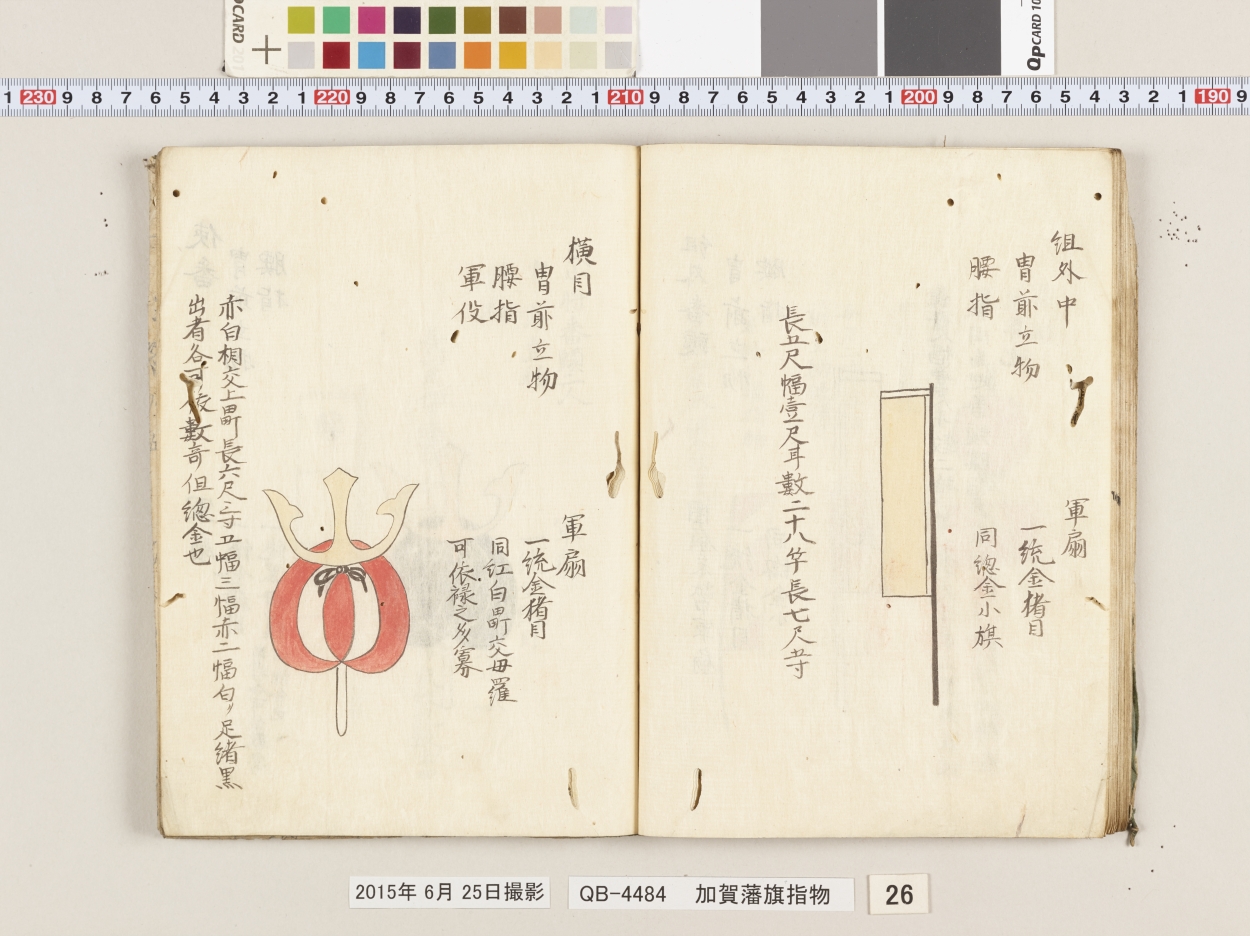 QPCARD 201
QPCARD 10
1 230 9 8 7 6 5 4 3 2 1 220 9 8 7 6 5 4 3 2 1 210 9 8 7 6 5 4 3 2 1 200 9 8 7 6 5 4 3 2 1 190 9
組外中
軍扇
冑前立物
一統金猪目
腰指
同總金小旗
長五尺幅壹尺耳數二十八竿長七尺五寸
横目
軍扇
冑前立物
一統金猪目
腰指
同紅白段交母羅
軍役
可依禄之多寡
赤白相交上段長六尺三寸五幅三幅赤二幅白〃足緒黒
出者各可 役數奇但總金也
2015年 6月 25日撮影
QB-4484 加賀藩旗指物
26